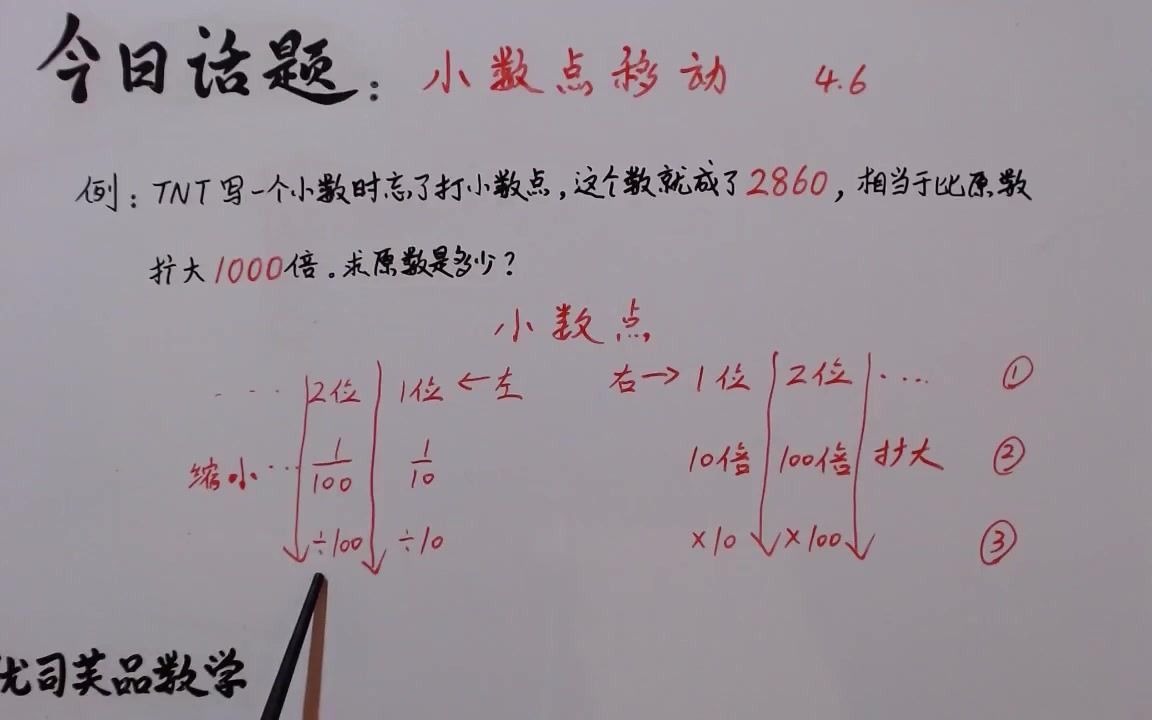 今日话题：小数点移动 4.6
例：TNT写一个小数时忘了打小数点，这个数就成了2860，相当于比原数
扩大1000倍。求原数是多少？
小数点
···· 2位 1位 ←左 右→ 1位 2位 ···· ①
缩小··· 1/100 1/10 10倍 100倍 扩大 ②
÷100 ÷10 ×10 ×100 ③
优司芙品数学